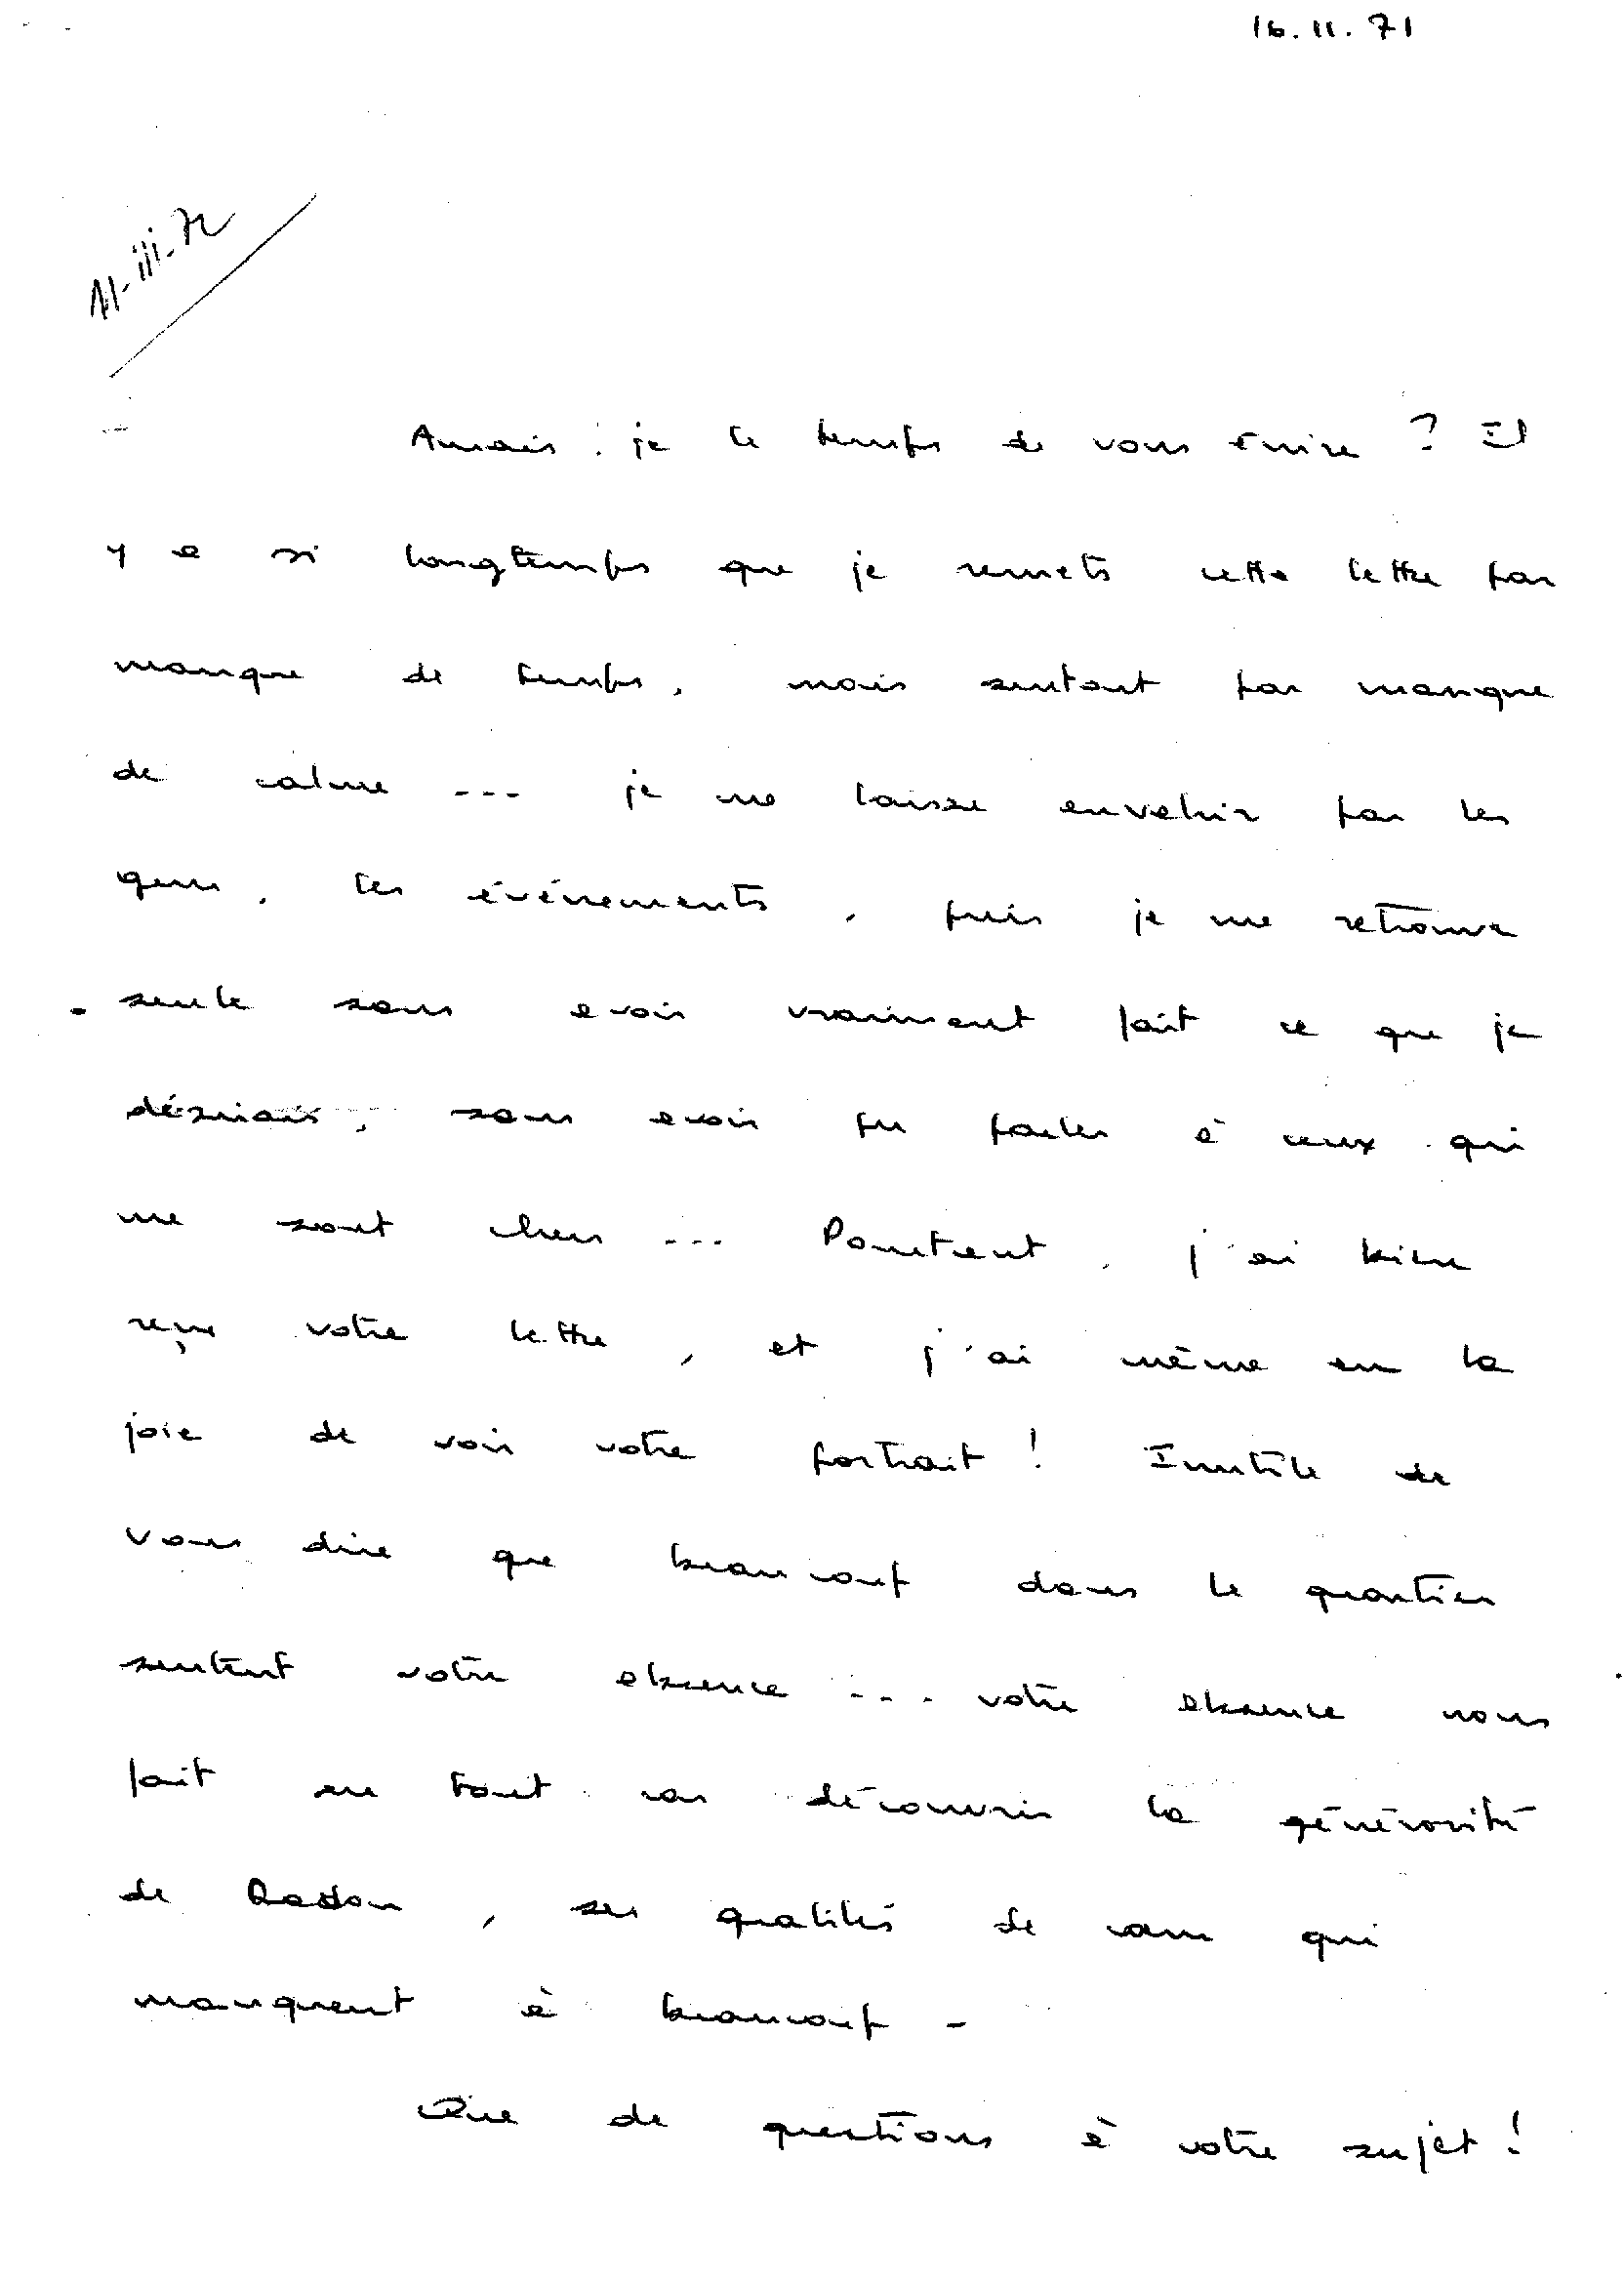 16.11.71
11-iii-72
Aurais-je le temps de vous écrire ? Il
y a si longtemps que je remets cette lettre par
manque de temps, mais surtout par manque
de calme --- je me laisse envahir par les
gens, les événements, puis je me retrouve
seule sans avoir vraiment fait ce que je
désirais, sans avoir pu parler à ceux qui
me sont chers --- Pourtant, j'ai bien
reçu votre lettre, et j'ai même eu la
joie de voir votre portrait ! Inutile de
vous dire que beaucoup dans le quartier
sentent votre absence --- votre absence nous
fait en tout cas découvrir la générosité
de , ses qualités de cœur qui
manquent à beaucoup -
Que de questions à votre sujet !